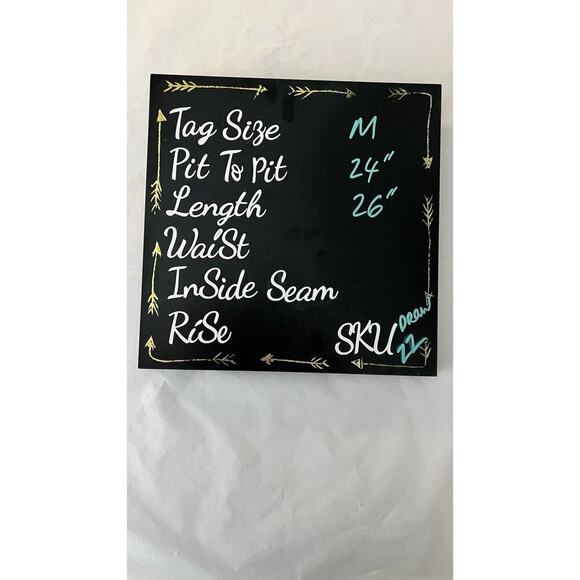 Tag Size M
Pit To Pit 24"
Length 26"
WaiSt
InSide Seam
RiSe
SKU DRAW
22